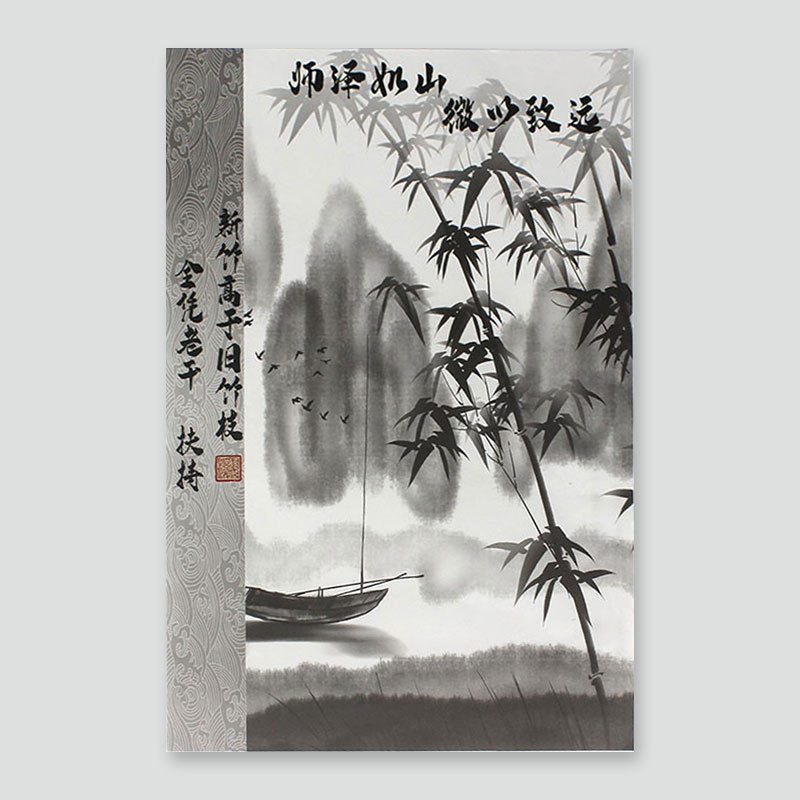 师泽如山
微以致远
新竹高于旧竹枝
全凭老干 扶持